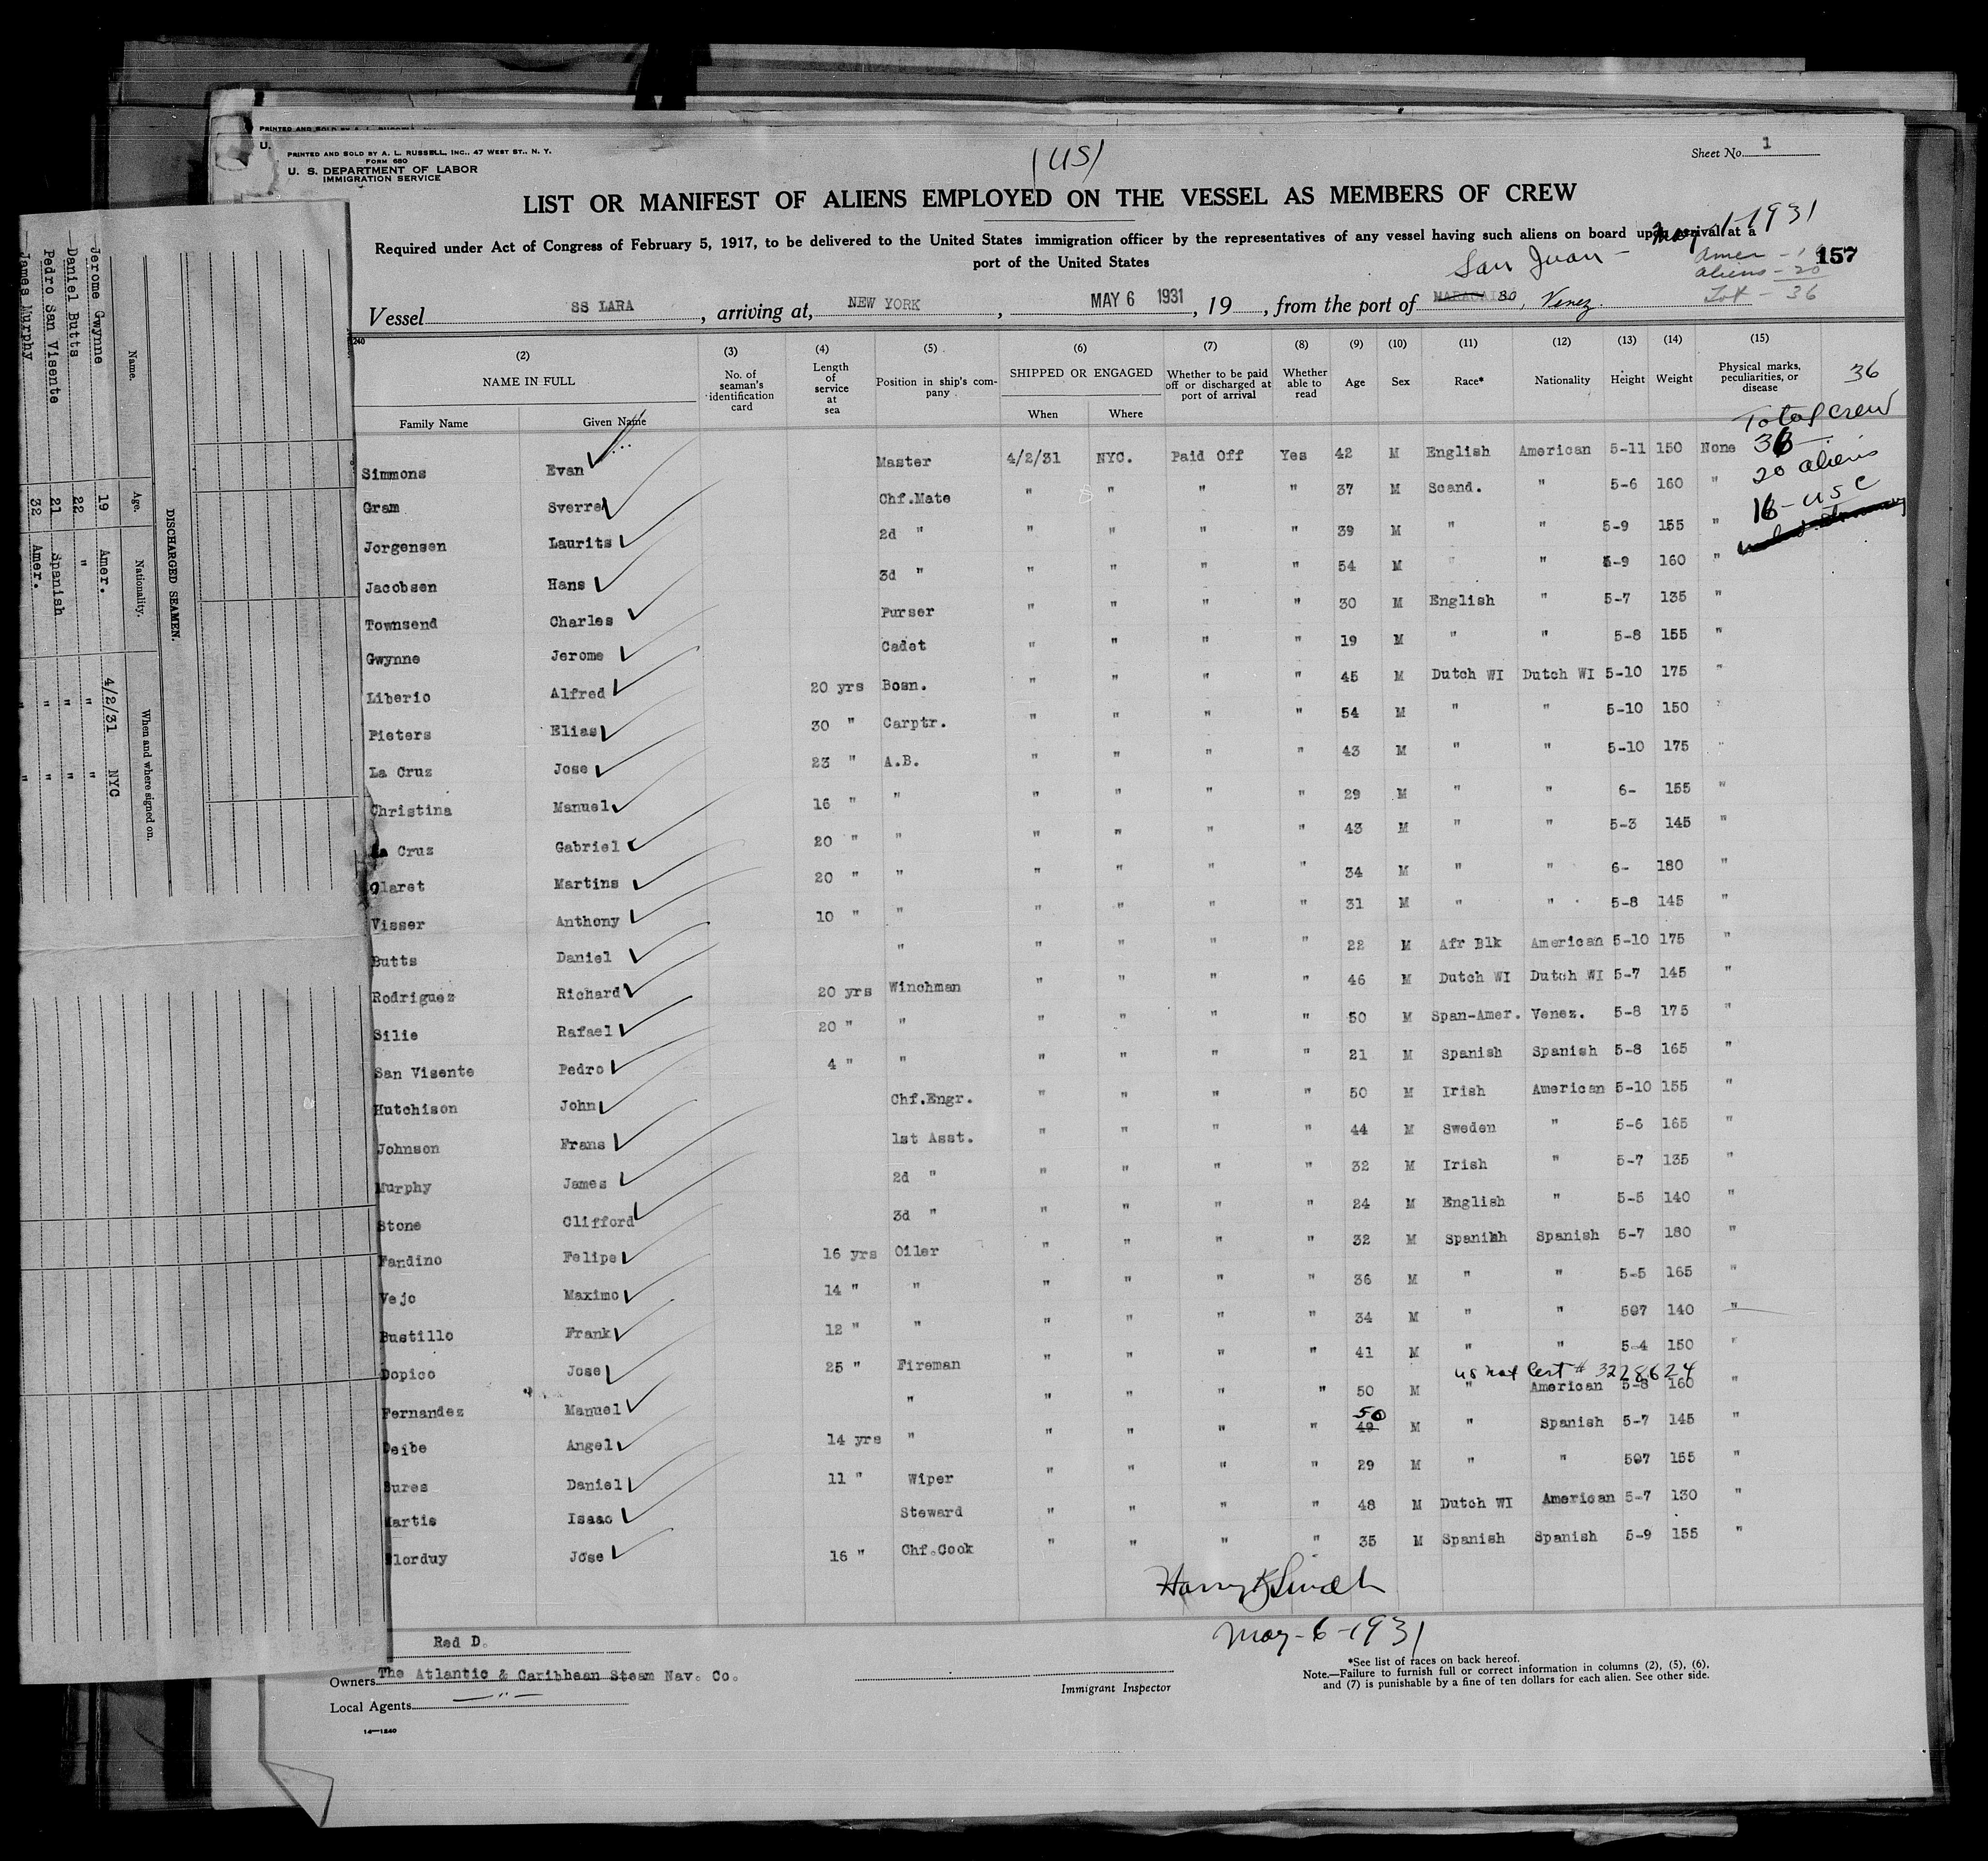 PRINTED AND SOLD BY A. L. RUSSELL, INC., 47 WEST ST., N. Y.
FORM 680
U. S. DEPARTMENT OF LABOR
IMMIGRATION SERVICE
(US)
Sheet No. 1
LIST OR MANIFEST OF ALIENS EMPLOYED ON THE VESSEL AS MEMBERS OF CREW
Required under Act of Congress of February 5, 1917, to be delivered to the United States immigration officer by the representatives of any vessel having such aliens on board upon arrival at a
port of the United States
May 1-1931
San Juan -
Amer - 16
157
aliens - 20
Tot - 36
Vessel SS LARA, arriving at, NEW YORK, MAY 6 1931, 19, from the port of MARACAIBO, Venez.
(2) (3) (4) (5) (6) (7) (8) (9) (10) (11) (12) (13) (14) (15)
NAME IN FULL No. of seaman's identification card Length of service at sea Position in ship's company SHIPPED OR ENGAGED Whether to be paid off or discharged at port of arrival Whether able to read Age Sex Race* Nationality Height Weight Physical marks, peculiarities, or disease
Family Name Given Name When Where
36
Total crew
36
20 aliens
16 - USC
Simmons Evan Master 4/2/31 NYC. Paid Off Yes 42 M English American 5-11 150 None
Gram Sverre Chf.Mate " " " " 37 M Scand. " 5-6 160 "
Jorgensen Laurits 2d " " " " " 39 M " " 5-9 155 "
Jacobsen Hans 3d " " " " " 54 M " " 5-9 160 "
Townsend Charles Purser " " " " 30 M English " 5-7 135 "
Gwynne Jerome Cadet " " " " 19 M " " 5-8 155 "
Liberio Alfred 20 yrs Bosn. " " " " 45 M Dutch WI Dutch WI 5-10 175 "
Pieters Elias 30 " Carptr. " " " " 54 M " " 5-10 150 "
La Cruz Jose 23 " A.B. " " " " 43 M " " 5-10 175 "
Christina Manuel 16 " " " " " " 29 M " " 6- 155 "
La Cruz Gabriel 20 " " " " " " 43 M " " 5-3 145 "
Claret Martins 20 " " " " " " 34 M " " 6- 180 "
Visser Anthony 10 " " " " " " 31 M " " 5-8 145 "
Butts Daniel " " " " " 22 M Afr Blk American 5-10 175 "
Rodriguez Richard 20 yrs Winchman " " " " 46 M Dutch WI Dutch WI 5-7 145 "
Silie Rafael 20 " " " " " " 50 M Span-Amer. Venez. 5-8 175 "
San Visente Pedro 4 " " " " " " 21 M Spanish Spanish 5-8 165 "
Hutchison John Chf.Engr. " " " " 50 M Irish American 5-10 155 "
Johnson Frans 1st Asst. " " " " 44 M Sweden " 5-6 165 "
Murphy James 2d " " " " " 32 M Irish " 5-7 135 "
Stone Clifford 3d " " " " " 24 M English " 5-5 140 "
Fandino Felipe 16 yrs Oiler " " " " 32 M Spanihh Spanish 5-7 180 "
Vejo Maximo 14 " " " " " " 36 M " " 5-5 165 "
Bustillo Frank 12 " " " " " " 34 M " " 507 140 "
Dopico Jose 25 " Fireman " " " " 41 M " " 5-4 150 "
US Nat Cert # 3228624
Fernandez Manuel " " " " " 50 M " American 5-8 160 "
Deibe Angel 14 yrs " " " " " 49 50 M " Spanish 5-7 145 "
Bures Daniel 11 " Wiper " " " " 29 M " " 507 155 "
Martis Isaac Steward " " " " 48 M Dutch WI American 5-7 130 "
Elorduy Jose 16 " Chf.Cook " " " " 35 M Spanish Spanish 5-9 155 "
May-6-1931
Red D.
Owners The Atlantic & Caribbean Steam Nav. Co.
Local Agents — " —
Immigrant Inspector
*See list of races on back hereof.
Note.—Failure to furnish full or correct information in columns (2), (5), (6),
and (7) is punishable by a fine of ten dollars for each alien. See other side.
14—1240
DISCHARGED SEAMEN.
Name. Age. Nationality. When and where signed on.
Jerome Gwynne 19 Amer. 4/2/31 NYC
Daniel Butts 22 " " "
Pedro San Visente 21 Spanish " "
James Murphy 32 Amer. " "